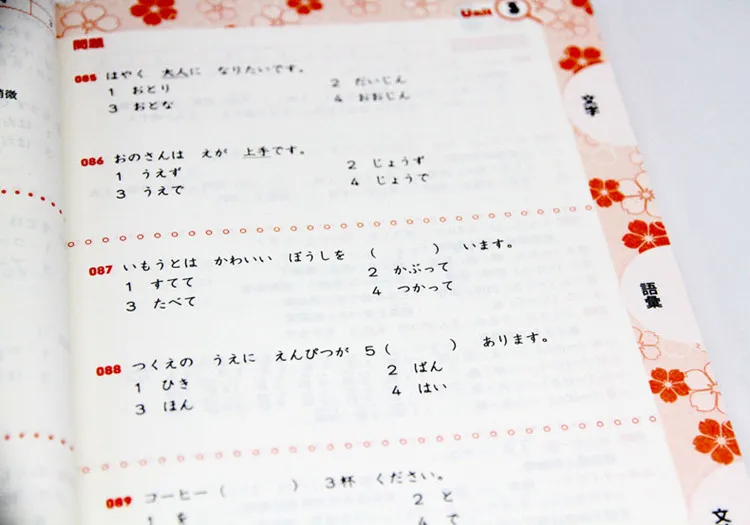 Unit 3
問題
085 はやく 大人に なりたいです。
1 おとり 2 だいじん
3 おとな 4 おおじん
086 おのさんは えが 上手です。
1 うえず 2 じょうず
3 うえで 4 じょうで
087 いもうとは かわいい ぼうしを ( ) います。
1 すてて 2 かぶって
3 たべて 4 つかって
088 つくえの うえに えんぴつが 5( ) あります。
1 ひき 2 ばん
3 ほん 4 はい
089 コーヒー( ) 3杯 ください。
1 を 2 と
4 で
文字
語彙
文